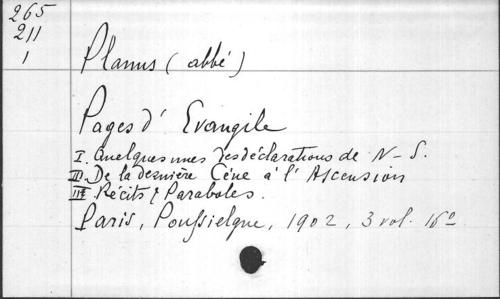 265
211
1
Planus (abbé)
Pages d' Evangile
I. Quelques unes des déclarations de N-S.
II. De la dernière Cène à l'Ascension
III. Récits & Paraboles.
Paris, Poussielgue, 1902, 3 vol. 16º